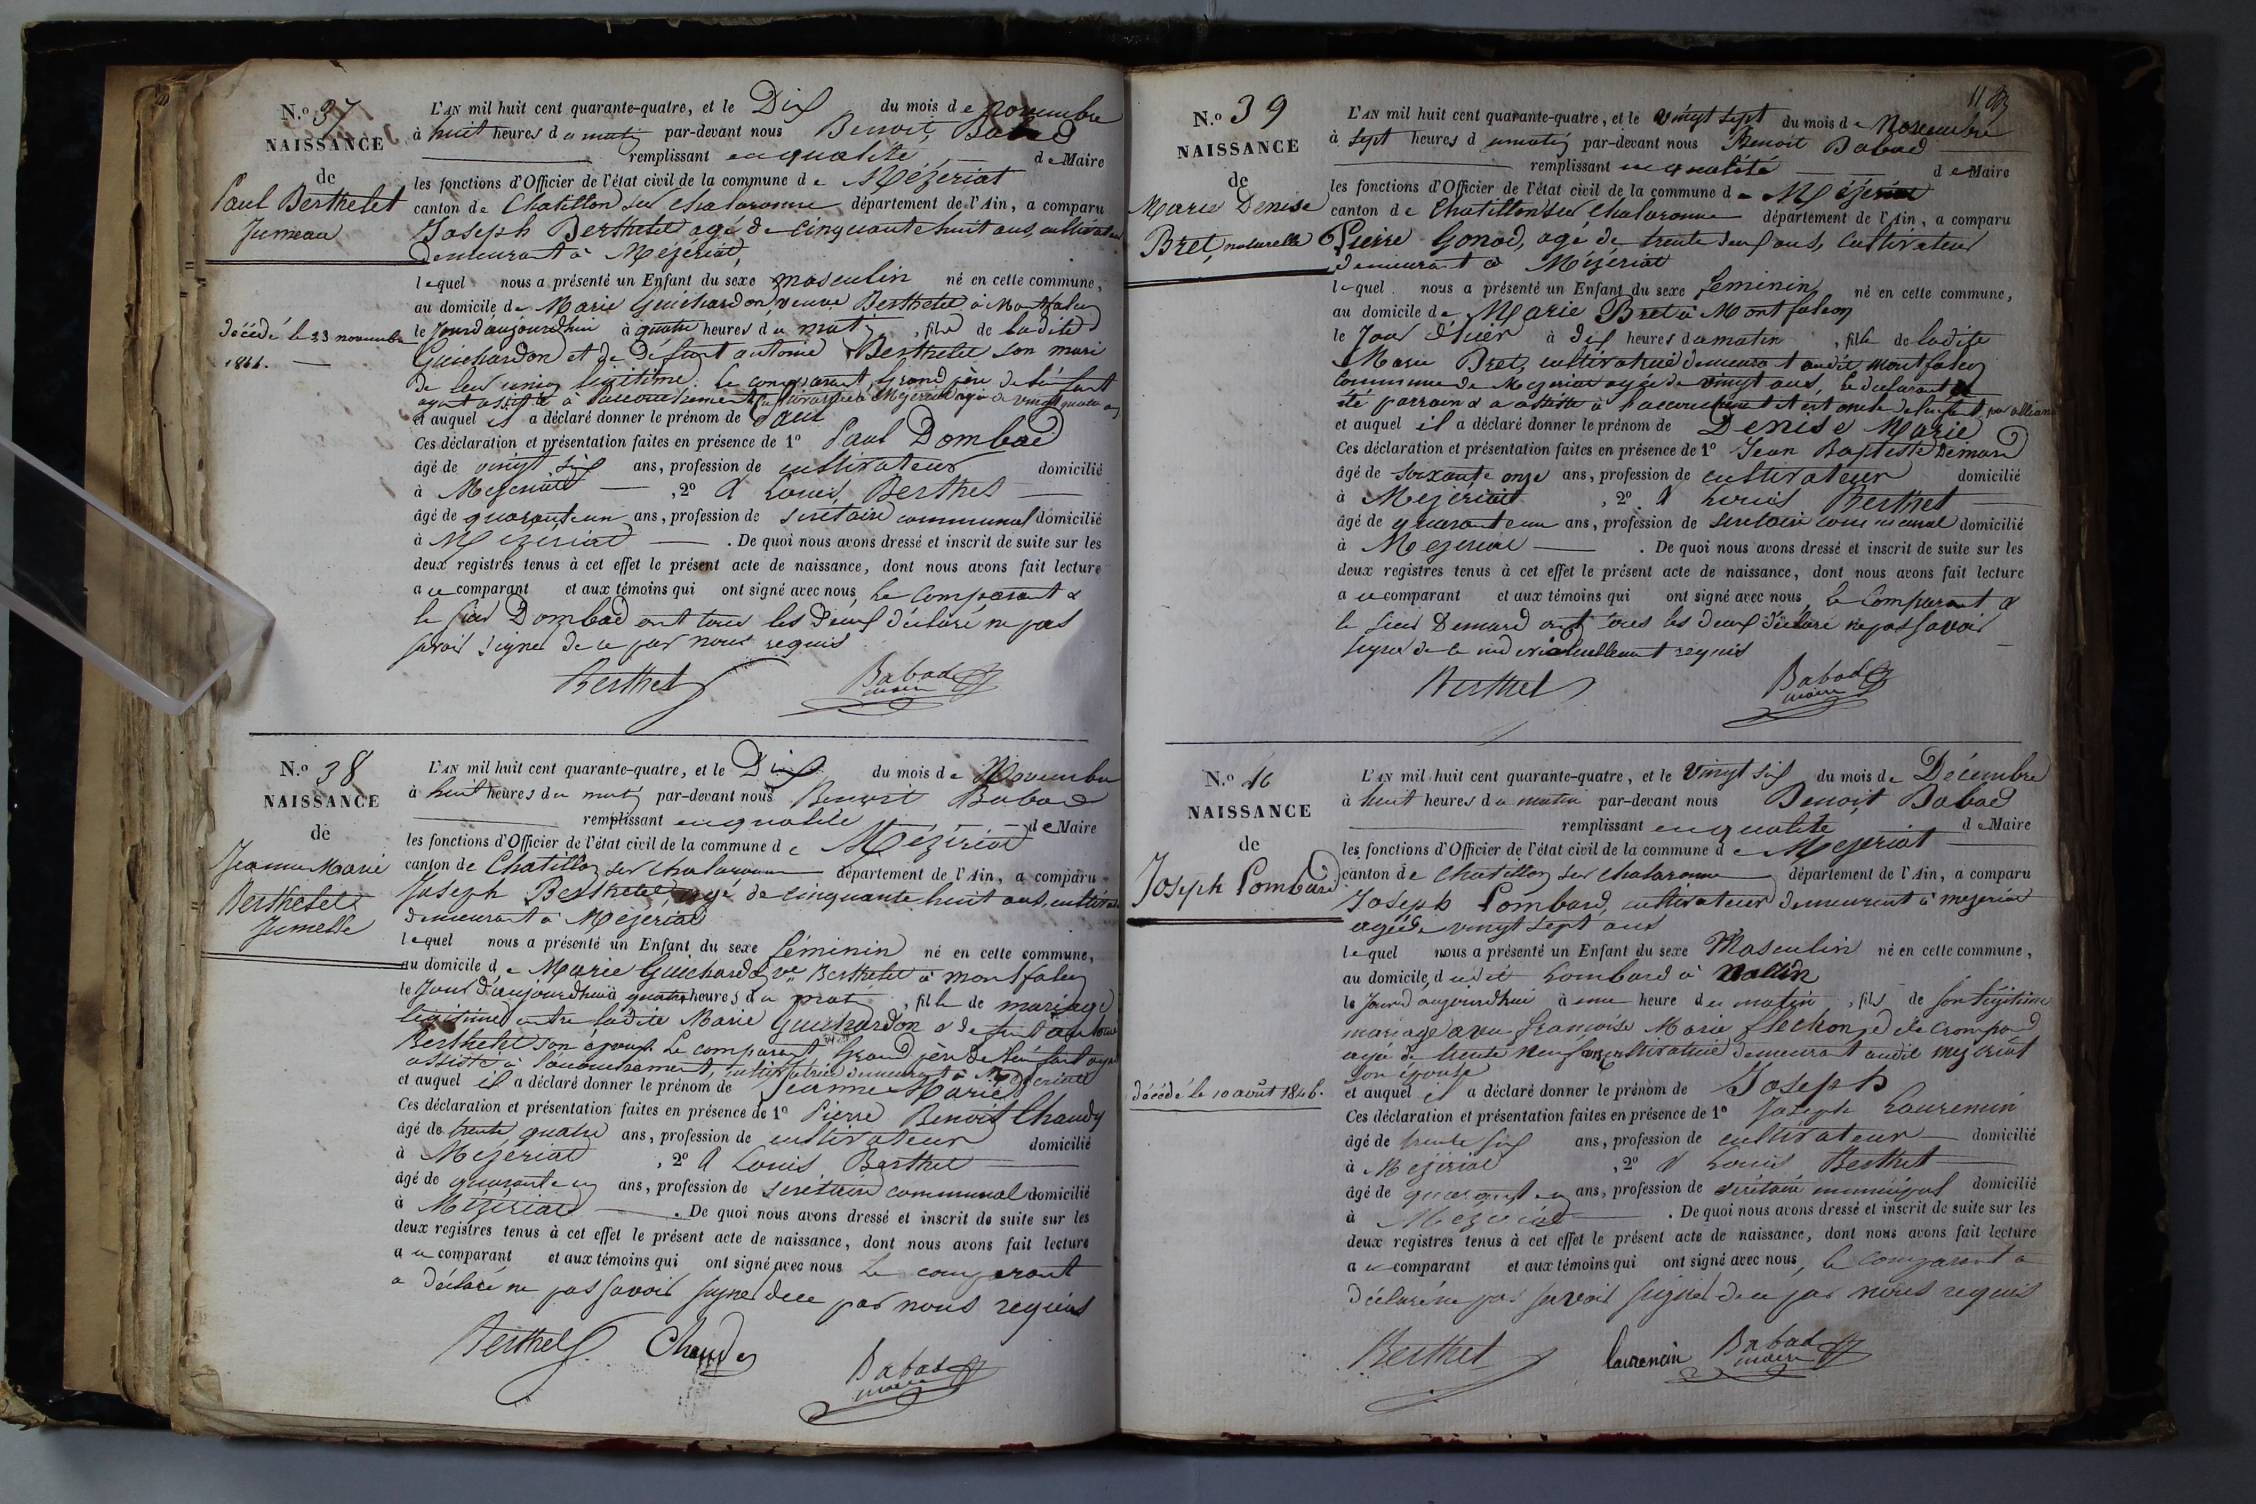 N.o 37
NAISSANCE
de
Paul Berthelet
Jumeau
décédé le 23 novembre
1844.
L'AN mil huit cent quarante-quatre, et le Dix du mois de novembre
à huit heures du matin par-devant nous Benoit Babad
remplissant en qualité de Maire
les fonctions d'Officier de l'état civil de la commune de Mézériat
canton de Chatillon sur Chalaronne département de l'Ain, a comparu
Joseph Berthelet agé de cinquante huit ans, cultivateur
demeurant à Mézériat,
lequel nous a présenté un Enfant du sexe masculin né en cette commune,
au domicile de Marie Guichardon veuve Berthelet à Montfalcon
le Jour d'aujourdhui à quatre heures du matin, fils de ladite
Guichardon et de défunt antoine Berthelet son mari
de leur union légitime. Le comparant, Grand père de l'enfant
ayant assisté à l'accouchement
et auquel il a déclaré donner le prénom de Paul
Ces déclaration et présentation faites en présence de 1o Paul Dombad
âgé de vingt six ans, profession de cultivateur domicilié
à Mézériat, 2o & Louis Berthet
âgé de quarante un ans, profession de secrétaire communal domicilié
à Mézériat. De quoi nous avons dressé et inscrit de suite sur les
deux registres tenus à cet effet le présent acte de naissance, dont nous avons fait lecture
a ce comparant et aux témoins qui ont signé avec nous, Le comparant &
le sieur Dombad ont tous les deux déclaré ne pas
savoir signer de ce par nous requis
Berthet Babad
maire
N.o 38
NAISSANCE
de
Jeanne Marie
Berthelet
Jumelle
L'AN mil huit cent quarante-quatre, et le Dix du mois de Novembre
à huit heures du matin par-devant nous Benoit Babad
remplissant en qualité de Maire
les fonctions d'Officier de l'état civil de la commune de Mézériat
canton de Chatillon sur Chalaronne département de l'Ain, a comparu
Joseph Berthelet, agé de cinquante huit ans, cultivateur
demeurant à Mézériat
lequel nous a présenté un Enfant du sexe féminin né en cette commune,
au domicile de Marie Guichardon ve Berthelet à montfalcon
le Jour d'aujourdhui à quatre heures du matin, fille de mariage
légitime entre ladite Marie Guichardon & defunt antoine
Berthelet son époux. Le comparant Grand père de l'enfant ayant
assisté à l'accouchement, cultivatrice demeurant à Mézériat
et auquel il a déclaré donner le prénom de Jeanne Marie
Ces déclaration et présentation faites en présence de 1o Pierre Benoit Chaudy
âgé de trente quatre ans, profession de cultivateur domicilié
à Mézériat, 2o & Louis Berthet
âgé de quarante un ans, profession de secrétaire communal domicilié
à Mézériat. De quoi nous avons dressé et inscrit de suite sur les
deux registres tenus à cet effet le présent acte de naissance, dont nous avons fait lecture
a ce comparant et aux témoins qui ont signé avec nous Le comparant
a déclaré ne pas savoir signer de ce par nous requis
Berthet Chaudy Babad
maire
N.o 39
NAISSANCE
de
Marie Denise
Bret, naturelle
L'AN mil huit cent quarante-quatre, et le vingt sept du mois de Novembre
à sept heures du matin par-devant nous Benoit Babad
remplissant en qualité de Maire
les fonctions d'Officier de l'état civil de la commune de Mézériat
canton de Chatillon sur Chalaronne département de l'Ain, a comparu
Pierre Gonod, agé de trente deux ans, cultivateur
demeurant à Mézériat
lequel nous a présenté un Enfant du sexe féminin né en cette commune,
au domicile de Marie Bret à Montfalcon
le Jour d'hier à dix heures du matin, fille de ladite
Marie Bret, cultivatrice demeurant audit montfalcon
commune de Mezeriat agée de vingt ans, le déclarant a
été parrain & a assisté à l'accouchement et est oncle de l'enfant par alliance
et auquel il a déclaré donner le prénom de Denise Marie
Ces déclaration et présentation faites en présence de 1o Jean Baptiste Demard
âgé de soixante onze ans, profession de cultivateur domicilié
à Mézériat, 2o & Louis Berthet
âgé de quarante un ans, profession de secrétaire communal domicilié
à Mezeriat. De quoi nous avons dressé et inscrit de suite sur les
deux registres tenus à cet effet le présent acte de naissance, dont nous avons fait lecture
a ce comparant et aux témoins qui ont signé avec nous, Le Comparant &
le sieur Demard ont tous les deux déclaré ne pas savoir
signer de ce individuellement requis
Berthet Babad
maire
N.o 40
NAISSANCE
de
Joseph Lombard
décédé le 10 août 1846.
L'AN mil huit cent quarante-quatre, et le vingt six du mois de Décembre
à huit heures du matin par-devant nous Benoit Babad
remplissant en qualité de Maire
les fonctions d'Officier de l'état civil de la commune de Mezeriat
canton de Chatillon sur Chalaronne département de l'Ain, a comparu
Joseph Lombard, cultivateur demeurant à mezeriat
agé de vingt sept ans
lequel nous a présenté un Enfant du sexe Masculin né en cette commune,
au domicile dudit Lombard à
le Jour d'aujourdhui à une heure du matin, fils de son légitime
mariage avec françoise Marie
agée de trente neuf ans, cultivatrice demeurant audit mezeriat
son épouse
et auquel il a déclaré donner le prénom de Joseph
Ces déclaration et présentation faites en présence de 1o Joseph Laurencin
âgé de trente six ans, profession de cultivateur domicilié
à Mézériat, 2o & Louis Berthet
âgé de quarante un ans, profession de secrétaire municipal domicilié
à Mézériat. De quoi nous avons dressé et inscrit de suite sur les
deux registres tenus à cet effet le présent acte de naissance, dont nous avons fait lecture
a ce comparant et aux témoins qui ont signé avec nous, le comparant a
déclaré ne pas savoir signer de ce par nous requis
Berthet laurencin Babad
maire